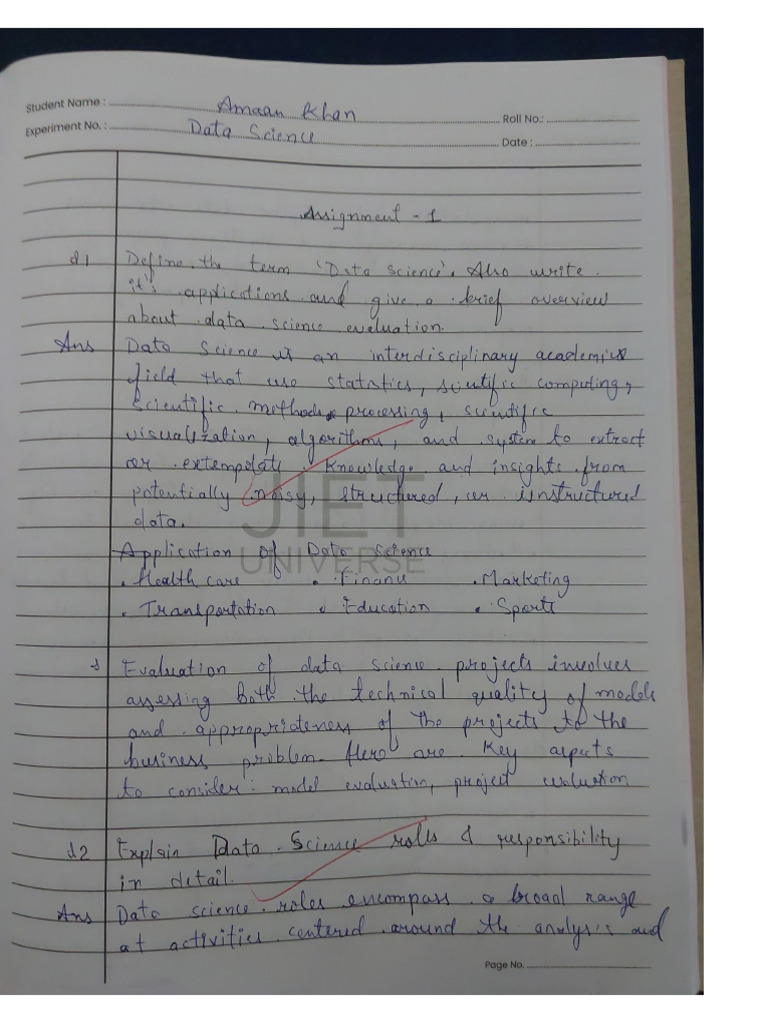 Student Name : Amaan Khan
Roll No.:
Experiment No. : Data Science
Date :
Assignment - 1
Q1 Define the term 'Data science'. Also write
it's applications and give a brief overview
about data science evaluation.
Ans Data Science is an interdisciplinary academic
field that use statatics, scientific computing,
Scientific methods, processing, scientific
visualization, algorithms, and system to extract
or extempolate knowledge and insights from
potentially noisy, structured, or unstructured
data.
Application of Data science
. Health care . Finance . Marketing
. Transportation . Education . Sports
JIET
UNIVERSE
Evaluation of data science projects involves
assessing both the technical quality of models
and appropriateness of the projects to the
business problem. Here are key aspects
to consider : model evaluation, project evaluation
Q2 Explain Data Science roles & responsibility
in detail.
Ans Data science roles encompass a broad range
at activities centered around the analysis and
Page No.